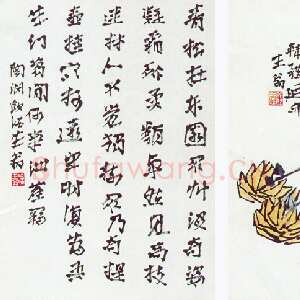 青松在東園衆草没奇姿
凝霜殄異類卓然見高枝
連林人不覺獨樹衆乃奇提
壺挂寒柯遠望時復為吾
生夢幻間何事紲塵羈
陶淵明飲酒
Shufawang.cn